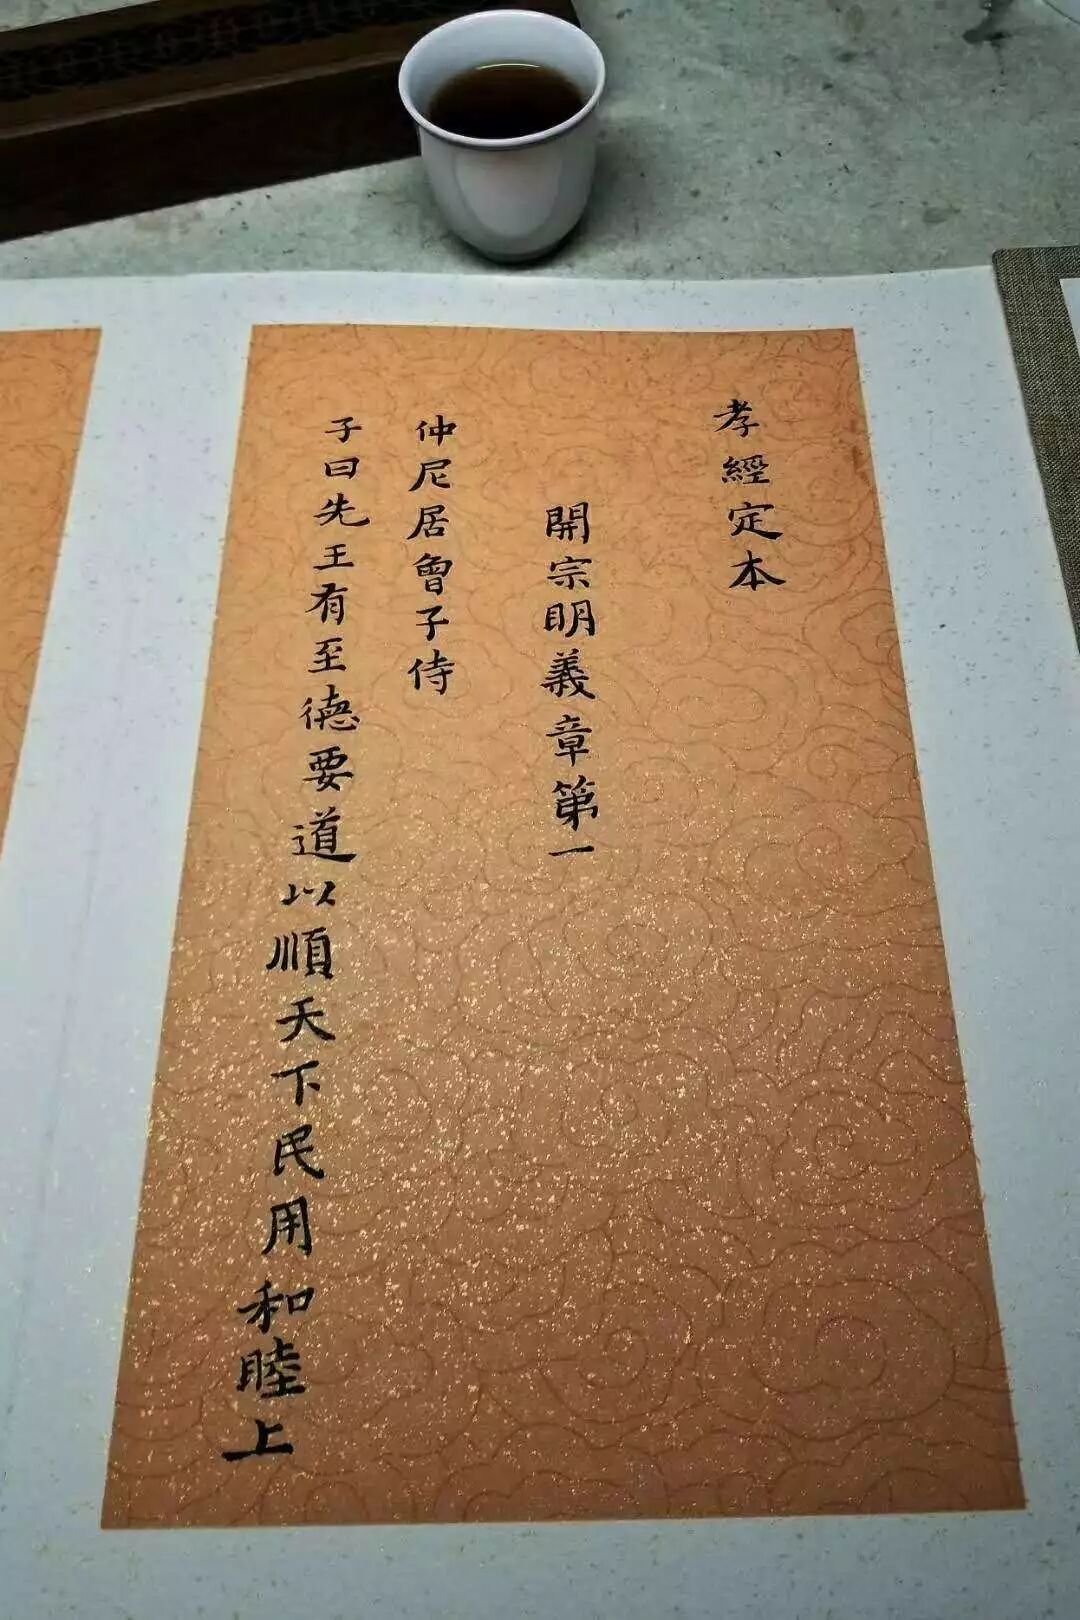 孝經定本
開宗明義章第一
仲尼居曾子侍
子曰先王有至德要道以順天下民用和睦上